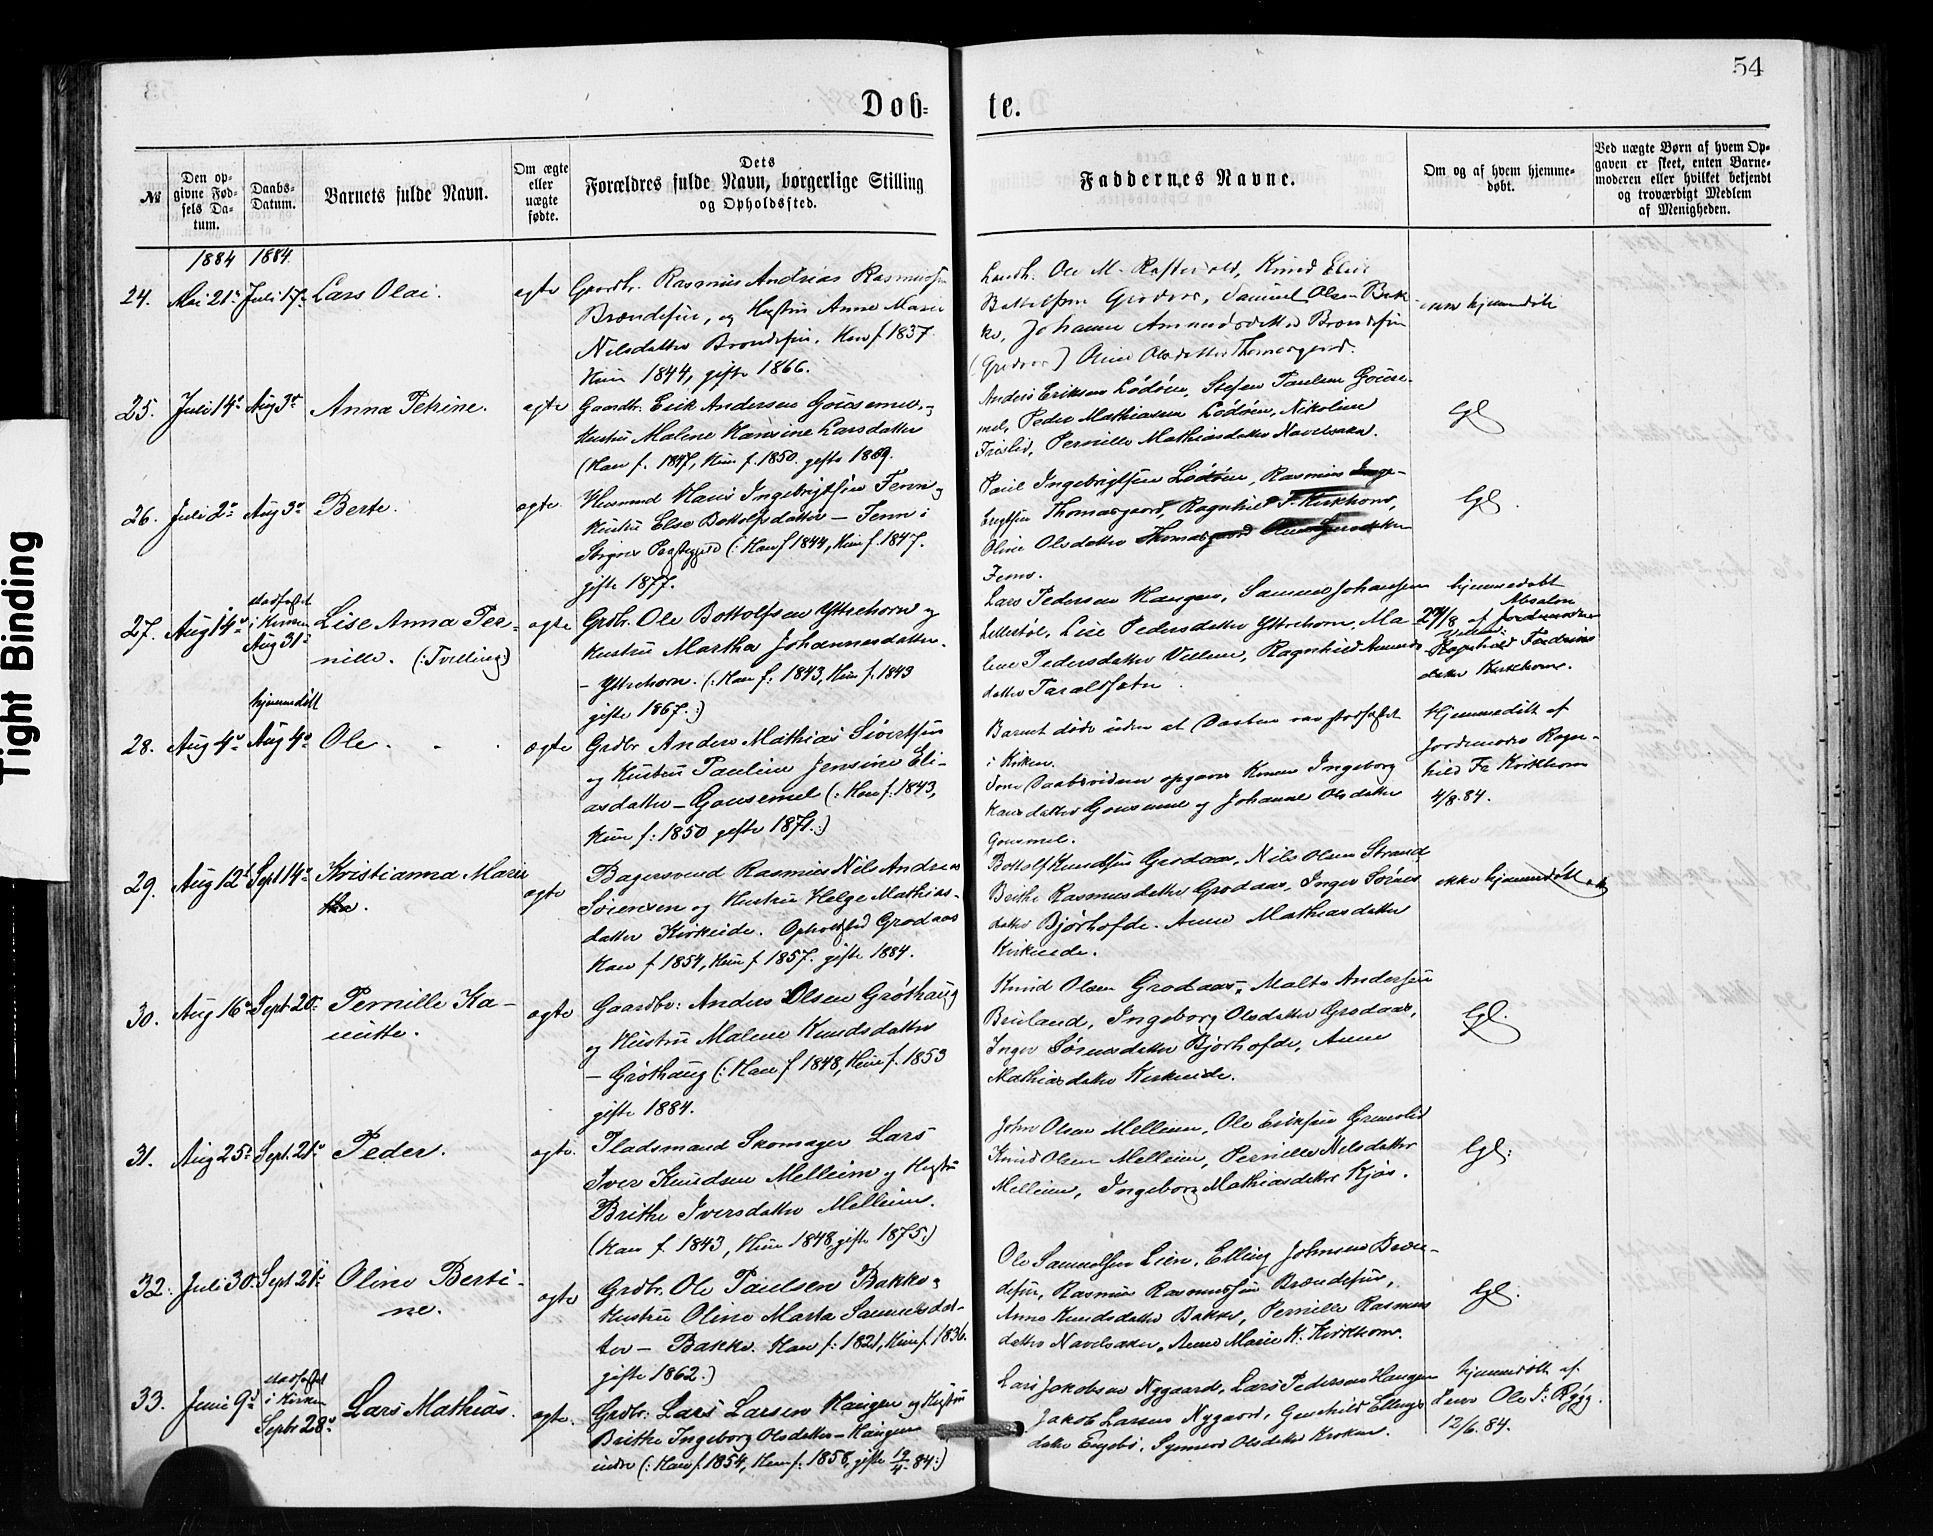 54
Døb- te.
№
Den op-
givne Fød-
sels Da-
tum.
Daabs-
Datum.
Barnets fulde Navn.
Om ægte
eller
uægte
fødte.
Dets
Forældres fulde Navn, borgerlige Stilling
og Opholdssted.
Faddernes Navne.
Om og af hvem hjemme-
døbt.
Ved uægte Børn af hvem Op-
gaven er skeet, enten Barne-
moderen eller hvilket bekjendt
og troværdigt Medlem
af Menigheden.
1884 1884
24. Mai 21de Juli 17de Lars Olai. ægte
Gaardbr. Rasmus Andreas Rasmussen
Brændsfur, og Hustru Anne Marie
Nilsdatter Brændsfur. Han f. 1837.
Hun 1844, gifte 1866.
Landh. Ole M. Raftevold, Knud Elias
Bottolfsen Grodaas, Samuel Olsen Bak-
ke, Johanne Amundsdatter Brændsfur
(Grodaas) Oline Olsdatter Thomasgaard.
hjemmedøbt
25. Juli 14de Aug 3de Anna Petrine. ægte
Gaardbr. Erik Andersen Gousemel og
Hustru Malene Hansine Larsdatter
(Han f. 1847, Hun f. 1850. gifte 1869.
Anders Eriksen Lødøen, Stefen Paulsen Gouse-
mel, Peder Mathiasen Lødøen, Nikoline
Frislid, Pernille Mathiasdatter Navelsaker.
lgl
26. Juli 2den Aug 3de Berte. ægte.
Husmand Hans Ingebrigtsen Tenn og
Hustru Else Bottolfsdatter — Tenn i
(: Han f 1844, Hun f. 1847.
gifte 1877.
Paul Ingebrigtsen Lødøen, Rasmus Inge-
brigtsen Thomasgaard, Ragnhild F. Kirkhorn,
Oline Olsdatter Thomasgaard
27. Aug 14de
stadfæstet
i Kirken
Aug 31te
Lise Anna Per-
nille. (:Tvilling) ægte
Grdbr. Ole Bottolfsen Yttrehorn og
Hustru Martha Johannesdatter.
— Yttrehorn. (: Han f. 1843, Hun f. 1843
gifte 1867.:)
Lars Pedersen Haugen, Samson Johansen
Lise Pedersdatter Yttrehorn, Ma-
lene Pedersdatter Villum, Ragnhild Amunds-
datter Taraldsæter.
hjemmedøbt
Absalon
Ragnhild
datter Kirkhorn.
28. Aug 4de
hjemmedøbt
Aug 4de Ole. ægte
Grdbr Anders Mathias Sivertsen
og Hustru Pauline Jensine Eli-
asdatter — Gousemel (: Han f. 1843,
Hun f: 1850 gifte 1871.:)
Barnet døde uden at Daaben var stadfæstet
i Kirken.
Som Daabsvidner opgaves Konen Ingeborg
Hansdatter Gousemel og Johanne Olsdatter
Gousmel.
Hjemmedøbt af
Jordemoder Ragn-
hild Fr Kirkhorn
4/8. 84.
29. Aug 12te Sept 14de Kristianna Marie
ægte
Bagersvend Rasmus Nils Andreas
Sørensen og Hustru Helge Mathias-
datter Kirkeide. Opholdssted Grodaas
Han f 1854, Hun f 1857. gifte 1884.
Bottolf Knudsen Grodaas, Nils Olsen Strand
Brithe Rasmusdatter Grodaas, Inger Sørens
datter Bjørhofde. Anne Mathiasdatter
Kirkeide.
ikke hjemmedøbt
30. Aug 16de Sept 20de Pernille Ka-
nutte. ægte
Gaardbr: Anders Olsen Grøthaug
og Hustru Malene Knudsdatter
— Grøthaug (: Han f 1848, Hun f. 1853
gifte 1884.
Knud Olsen Grodaas, Malte Andersen
Bruland, Ingeborg Olsdatter Grodaas,
Inger Sørensdatter Bjørhofde, Anne
Mathiasdatter Kirkeide.
lgl.
31. Aug 25de Sept. 21de Peder. ægte.
Pladsmand Skomager Lars
Iver Knudsen Melleim og Hustru
Brithe Iversdatter Melleim.
(Han f. 1843, Hun 1848, gifte 1875.)
John Olsen Melleim, Ole Eriksen
Knud Olsen Melleim, Pernille Nilsdatter
Melleim, Ingeborg Mathiasdatter Kjøs.
lgl:
32. Juli 30. Sept 21de Oline Berti-
ne. ægte
Grdbr. Ole Paulsen Bakke og
Hustru Oline Marta Samuelsdat-
ter — Bakke. Han f: 1821, Hun f. 1836.
gifte 1862.)
Ole Samuelsen Lien, Elling Johnsen Bræn-
dsfur, Rasmus Rasmussen Brændsfur,
Anne Knudsdatter Bakke, Pernille Rasmus
datter Navelsaker, Anne Marie K. Kirkhorn.
lgl.
33. Juni 9de
stadfæstet
i Kirken
Septr 28de
Lars Mathias. ægte.
Grdbr: Lars Larsen Haugen og Hustru
Brithe Ingeborg Olsdatter — Haugen
indre (: Han f. 1854, Hun f: 1858, gifte 12/4 84:)
Lars Jakobsen Nygaard, Lars Pedersen Haugen
Jakob Larsen Nygaard, Gunhild Ellings
datter Engebø, Synneve Olsdatter Kroken.
hjemmedøbt af
Ole
12/6. 84.
Tight Binding